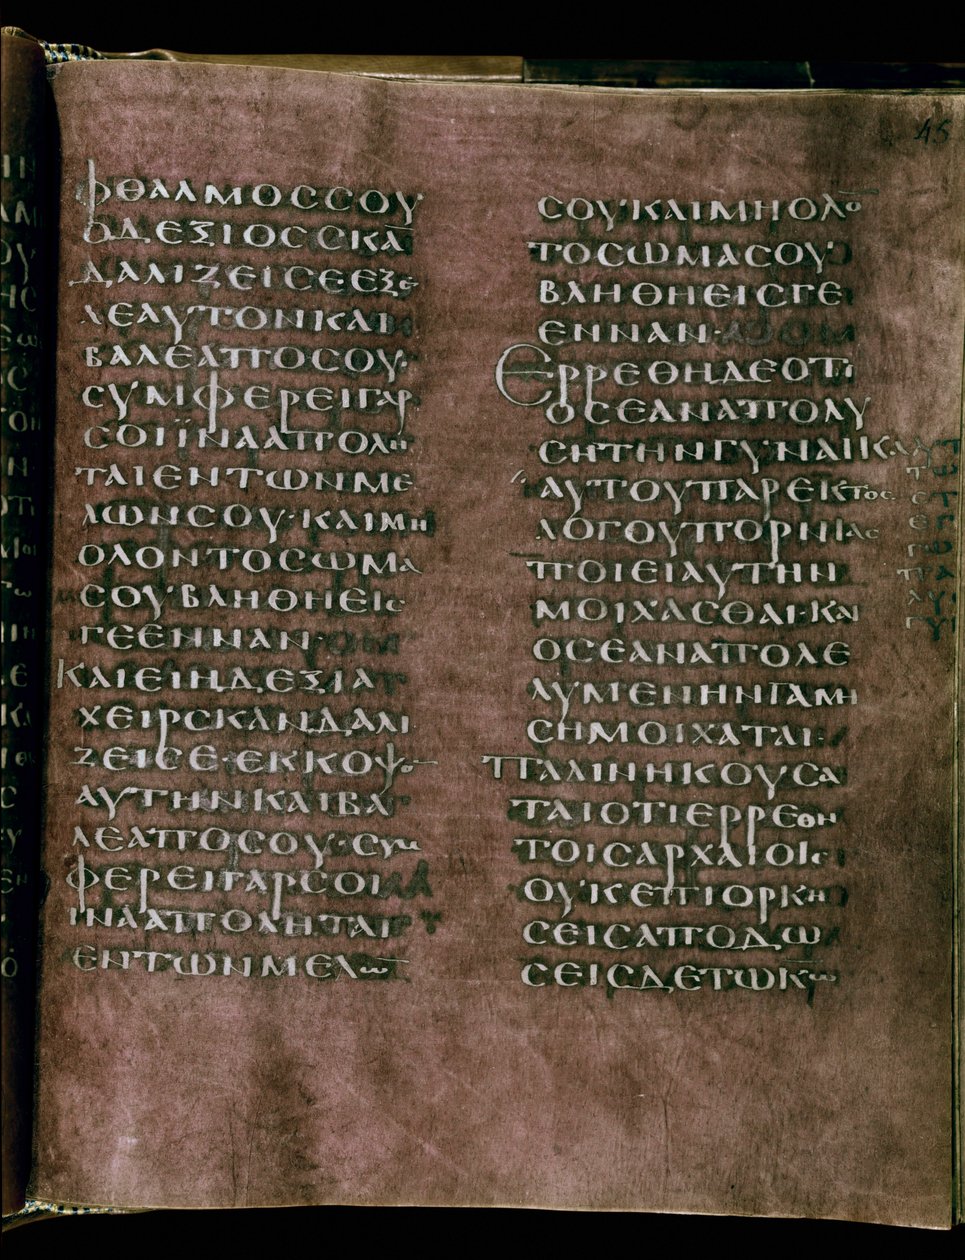 45
ΦΘΑΛΜΟССΟΥ
ΟΔΕΞΙΟССΚΑ̅
ΔΑΛΙΖΕΙСΕ·ΕΞΕ
ΛΕΑΥΤΟΝΚΑΙ
ΒΑΛΕΑΠΟСΟΥ·
СΥΜΦΕΡΕΙΓΑΡ
СΟΙΪΝΑΑΠΟΛΗ
ΤΑΙΕΝΤΩΝΜΕ
ΛΩΝСΟΥ·ΚΑΙΜΗ
ΟΛΟΝΤΟСΩΜΑ
СΟΥ·ΒΛΗΘΗΕΙС
ΓΕΕΝΝΑΝ·
ΚΑΙΕΙΗΔΕΞΙΑ
ΧΕΙΡСΚΑΝΔΑΛΙ
ΖΕΙСΕ·ΕΚΚΟΨΟ̅
ΑΥΤΗΝΚΑΙΒΑ
ΛΕΑΠΟСΟΥ·СΥΜ
ΦΕΡΕΙΓΑΡСΟΙ
ΙΝΑΑΠΟΛΗΤΑΙ
ΕΝΤΩΝΜΕΛΩ̅
СΟΥ·ΚΑΙΜΗΟΛΟ̅
ΤΟСΩΜΑСΟΥ
ΒΛΗΘΗΕΙСΓΕ
ΕΝΝΑΝ·
ΕΡΡΕΘΗΔΕΟΤΙ
ΟСΕΑΝΑΠΟΛΥ
СΗΤΗΝΓΥΝΑΙΚΑ
ΑΥΤΟΥΠΑΡΕΚΤΟС
ΛΟΓΟΥΠΟΡΝΙΑС
ΠΟΙΕΙΑΥΤΗΝ
ΜΟΙΧΑСΘΑΙ·ΚΑΙ
ΟСΕΑΝΑΠΟΛΕ
ΛΥΜΕΝΗΝΓΑΜΗ
СΗΜΟΙΧΑΤΑΙ·
ΠΑΛΙΝΗΚΟΥСΑ
ΤΑΙΟΤΙΕΡΡΕΘΗ
ΤΟΙСΑΡΧΑΙΟΙС
ΟΥΚΕΠΙΟΡΚΗ
СΕΙСΑΠΟΔΩ
СΕΙСΔΕΤΩΚ̅Ω̅